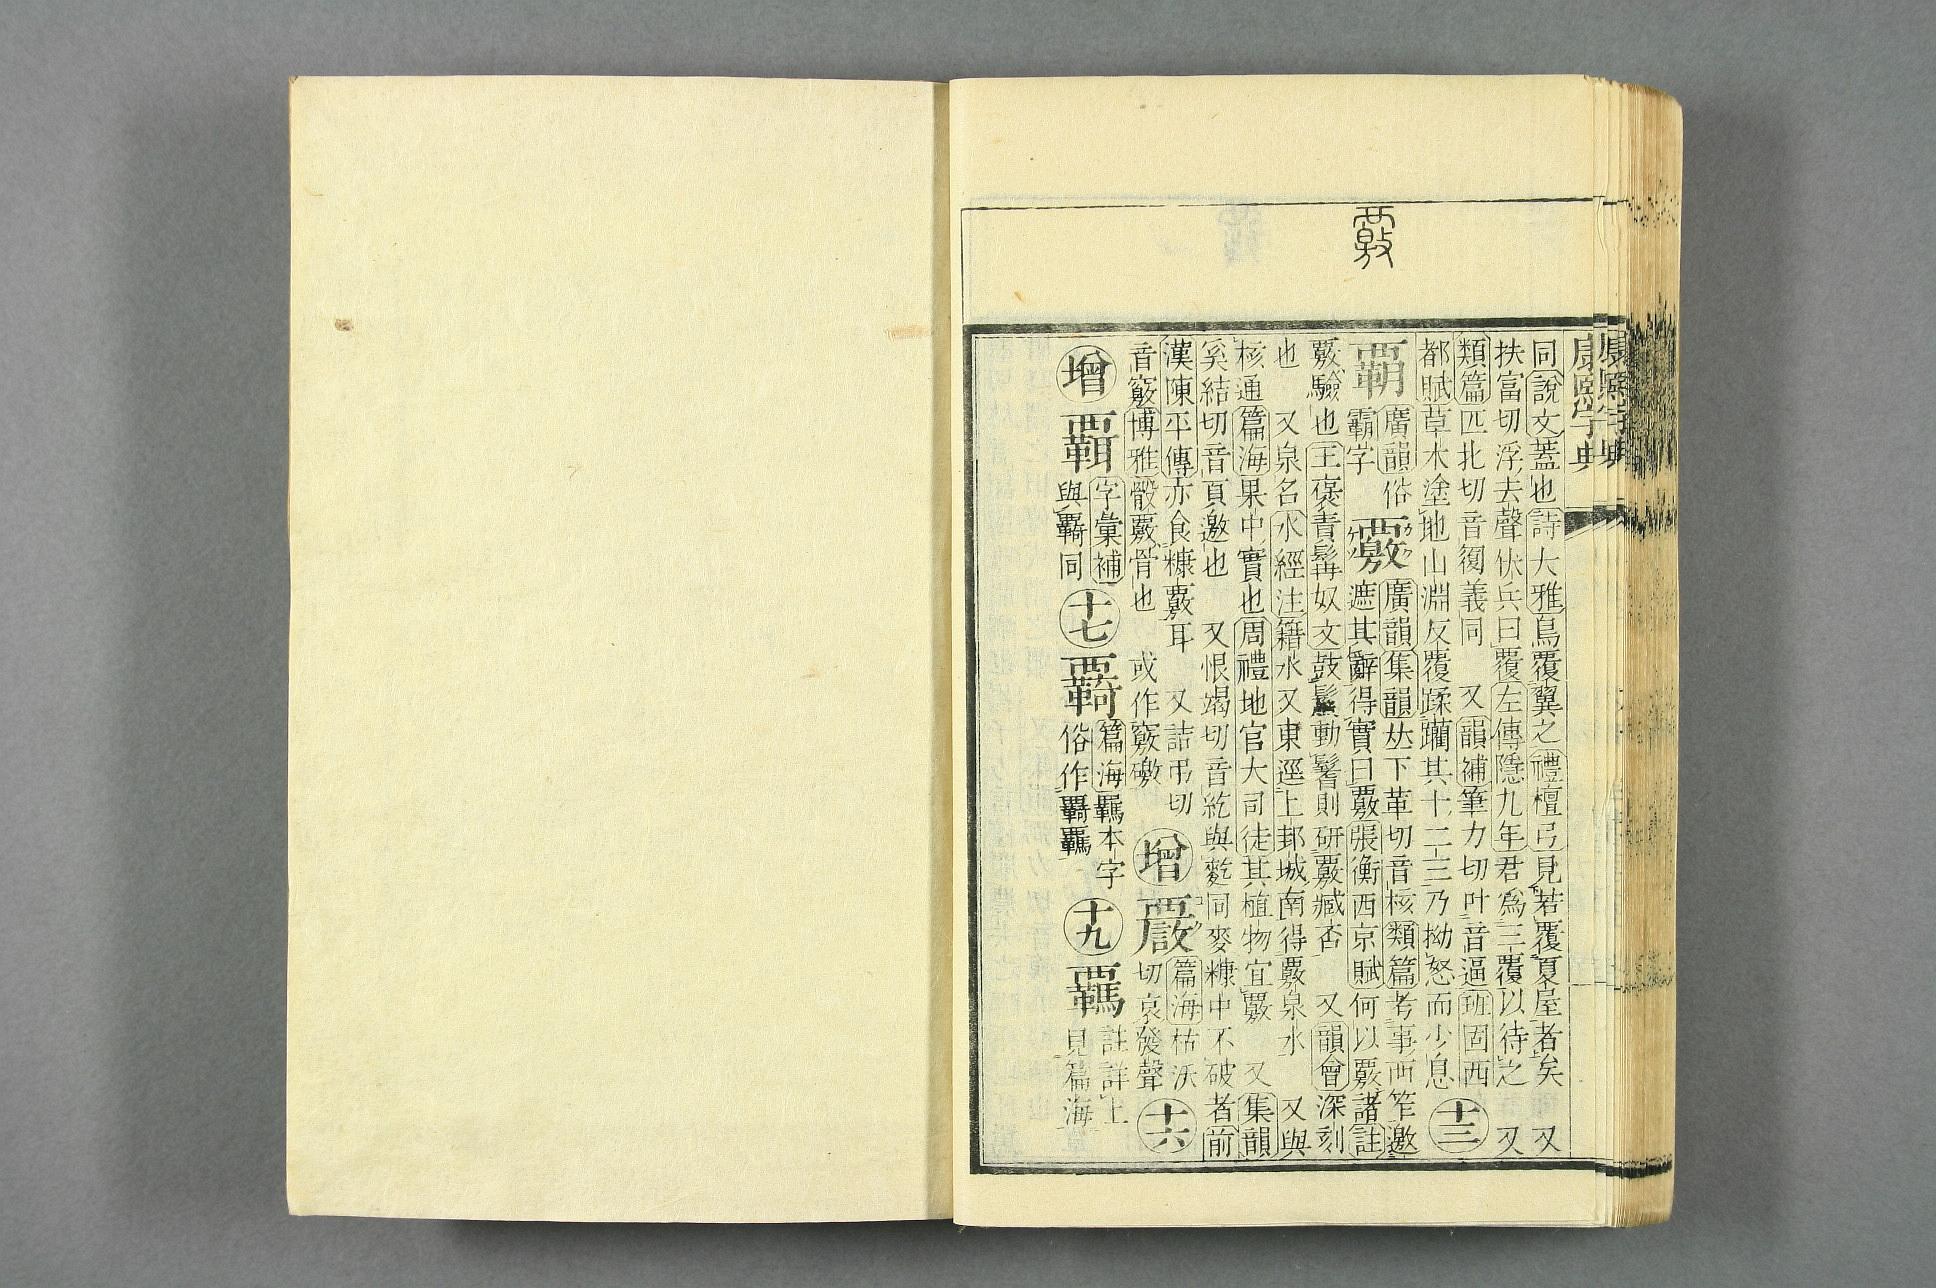 覈
康熙字典
同說文蓋也詩大雅鳥覆翼之禮檀弓見若覆夏屋者矣 又
扶富切浮去聲伏兵曰覆左傳隱九年君爲三覆以待之 又
類篇匹北切音復義同 又韻補筆力切叶音逼班固西
都賦草木塗地山淵反覆蹂躪其十二三乃拗怒而少息
十三
覇
廣韻俗
霸字
覈
廣韻集韻𠀤下革切音核類篇考事襾笮邀
遮其辭得實曰覈張衡西京賦何以覈諸註
覈驗也王褒責髯奴文鼓鬐動鬢則研覈臧否 又韻會深刻
也 又泉名水經注籍水又東逕上邽城南得覈泉水 又與
核通篇海果中實也周禮地官大司徒其植物宜覈 又集韻
奚結切音頁邀也 又恨竭切音紇與麧同麥糠中不破者前
漢陳平傳亦食糠覈耳 又詰弔切
音竅博雅骰覈骨也 或作竅礉
增
篇海枯沃
切哀發聲
十六
增
字彙補
與羇同
十七
覉
篇海羈本字
俗作羇羈
十九
覊
註詳上
見篇海